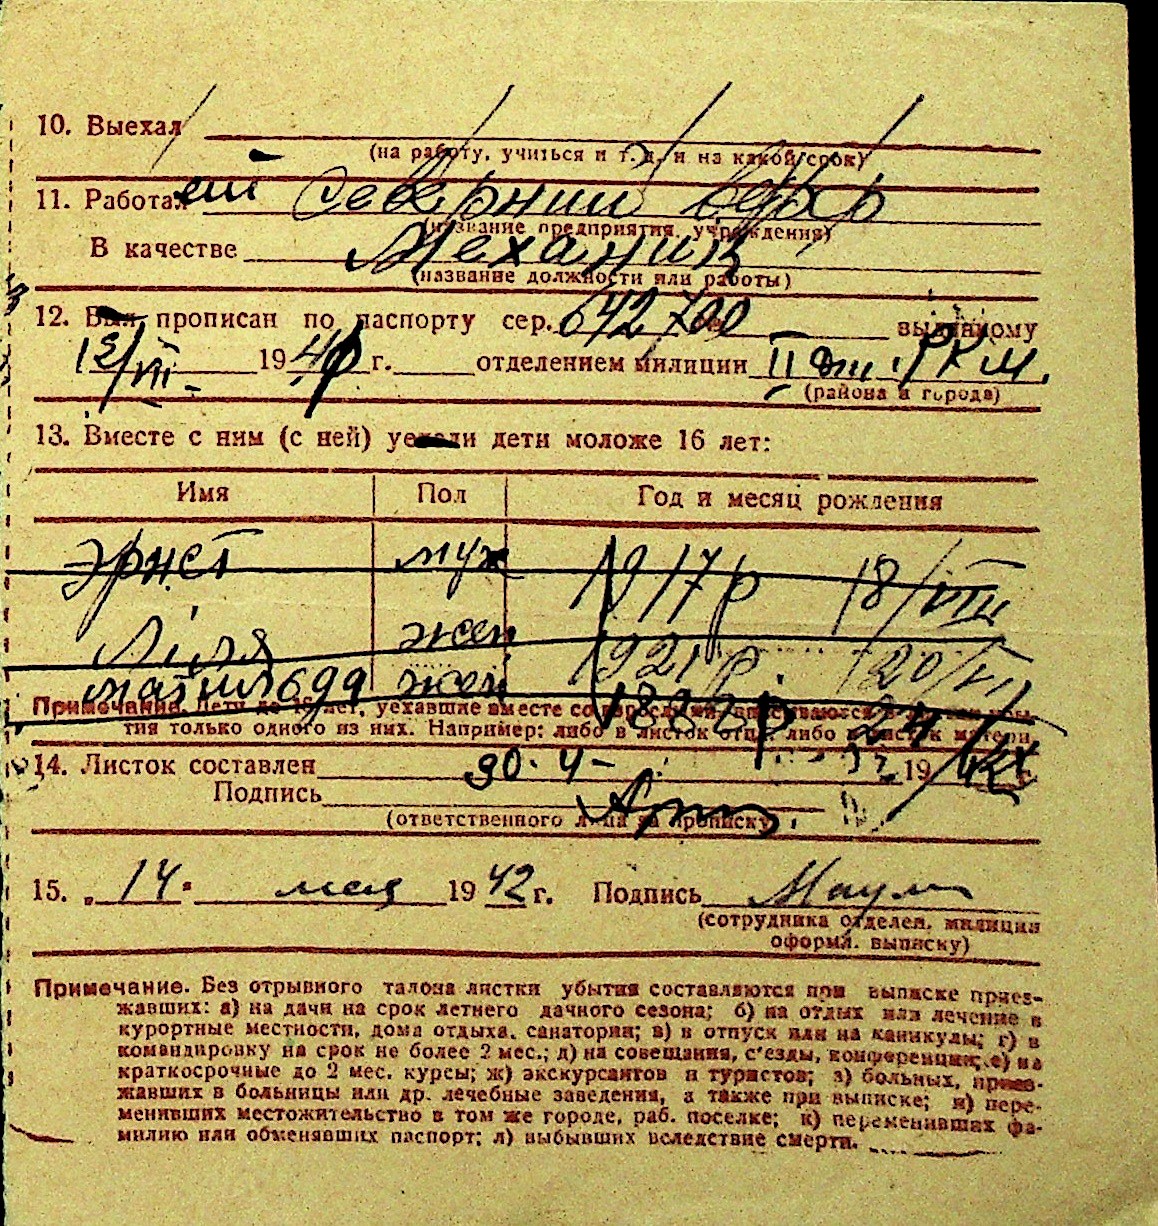 10. Выехал
(на работу, учиться и т. д. и на какой срок)
11. Работал
(название предприятия, учреждения)
В качестве Механик
(название должности или работы)
12. Был прописан по паспорту сер. 642700 выданному
19 г. отделением милиции II РКМ.
(района и города)
13. Вместе с ним (с ней) уехали дети моложе 16 лет:
Имя Пол Год и месяц рождения
Эрнст муж 1917р 18/VIII
жен 1921р 20/
жен
Примечание. Дети до 16 лет, уехавшие вместе со взрослыми, вписываются в листок убы-
тия только одного из них. Например: либо в листок отца, либо в листок матери.
14. Листок составлен 30. 19 г.
Подпись
(ответственного лица за прописку)
15. „ 14 " мая 1942 г. Подпись
(сотрудника отделен. милиции
оформл. выписку)
Примечание. Без отрывного талона листки убытия составляются при выписке приез-
жавших: а) на дачи на срок летнего дачного сезона; б) на отдых или лечение в
курортные местности, дома отдыха, санатории; в) в отпуск или на каникулы; г) в
командировку на срок не более 2 мес.; д) на совещания, с'езды, конференции; е) на
краткосрочные до 2 мес. курсы; ж) экскурсантов и туристов; з) больных, приез-
жавших в больницы или др. лечебные заведения, а также при выписке; и) пере-
менивших местожительство в том же городе, раб. поселке; к) переменивших фа-
милию или обменявших паспорт; л) выбывших вследствие смерти.